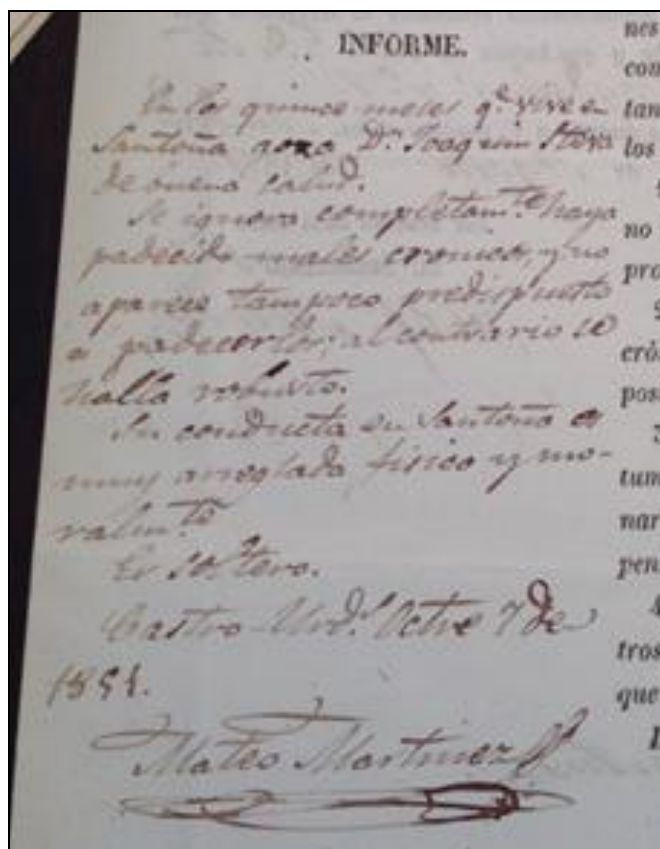 INFORME.
En los quince meses q.e vive en
Santoña goza D.n Joaquin
de buena salud.
Se ignora completam.te haya
padecido males cronicos, y no
aparece tampoco predispuesto
a padecerlos; al contrario se
halla robusto.
Su conducta en Santoña es
muy arreglada, fisico y mo-
ralm.te
Es soltero.
Castro-Urd.s Octre 7 de
Mateo Martinez
nes
con
tan
los
no
pro
crò
pos
3
tum
nar
pen
4
tros
que